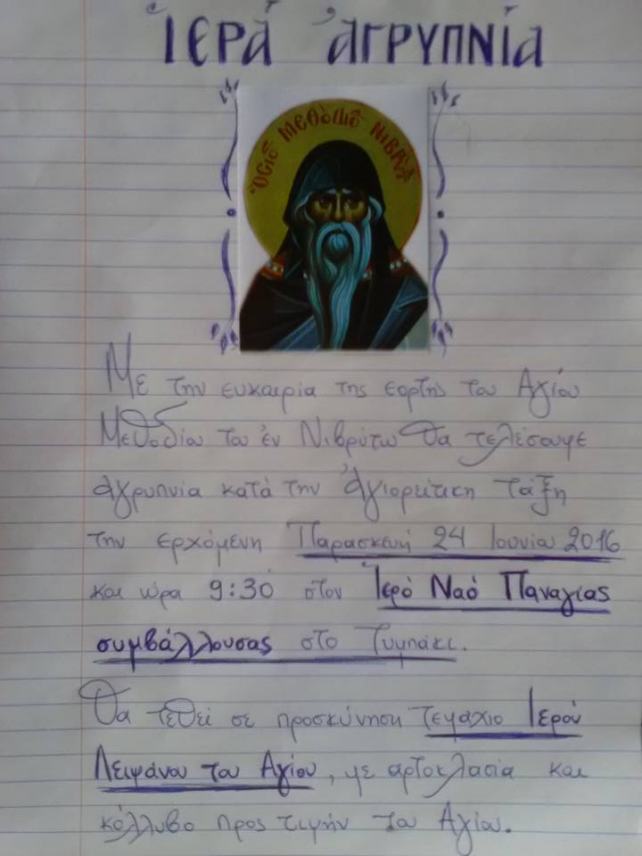 ἹΕΡΆ ἈΓΡΥΠΝΊΑ
ὍΣΙΟΣ ΜΕΘΌΔΙΟΣ
Με την ευκαιρία της εορτής του Αγίου
Μεθοδίου του ἐν Νιβρύτω θα τελέσουμε
αγρυπνία κατά την Ἁγιορείτικη τάξη
την ερχόμενη Παρασκευή 24 Ιουνίου 2016
και ώρα 9:30 στον Ἱερό Ναό Παναγίας
συμβάλλουσας στο Τυμπάκι.
Θα τεθεί σε προσκύνηση τεμάχιο Ιερού
Λειψάνου του Αγίου, με αρτοκλασία και
κόλλυβο προς τιμήν του Αγίου.